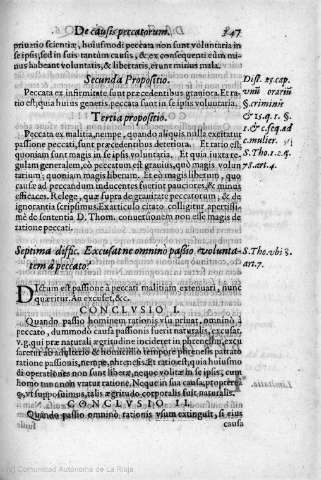 De causis peccatorum. 247
priuatio scientiæ, huiusmodi peccata non sunt voluntaria in
se ipsis, sed in suis tantum causis, & ex consequenti cùm mi-
nus habeant voluntatis, & libertatis, erunt minùs mala.
Secunda Propositio.
Peccata ex infirmitate sunt præcedentibus grauiora. Et ra-
tio est; quia huius generis peccata sunt in se ipsis voluntaria.
Dist. 25. cap.
vnũ orariũ
§. criminis
& 15. q. 1. §.
1. & c. seq. ad
c. mulier.
S. Tho. 1. 2. q.
78. art. 4.
Tertia propositio.
Peccata ex malitia, nempe, quando aliquis nulla exercitat
passione peccati, sunt præcedentibus deteriora. Et ratio est,
quoniam sunt magis in se ipsis voluntaria. Et quia iuxta re-
gulam generalem, eò peccatum est grauius, quò magis volun-
tarium; quoniam magis liberum. Et eò magis liberum, quo
causæ ad peccandum inducentes fuerint pauciores, & minùs
efficaces. Relege, quæ supra de grauitate peccatorum, & de
ignorantia scripsimus. Ex articulo citato colligitur apertissi-
mè de sententia D. Thom. conuersionem non esse magis de
ratione peccati.
Septima diffic. Excusat ne omninò passio volunta-
tem à peccato?
S. Tho. vbi
art. 7.
Dictum est passionem à peccati malitiam extenuari, nunc
quæritur. An excuset, &c.
CONCLVSIO I.
Quando passio hominem rationis vsu priuat, omninò à
peccato, dummodo causa passionis fuerit naturalis, excusat,
v. g. qui præ naturali ægritudine incideret in phrenesim, excu
saretur ab adulterio & homicidio tempore phrenesis patrato
ratione passionis, nempe, phrenesis. Et ratio est, quia huiusmo
di operationes non sunt liberæ, neque volitæ in se ipsis; cum
homo tunc non vtatur ratione. Neque in sua causa, proptere à
q, vt supposuimus, talis ægritudo corporalis fuit naturalis.
CONCLVSIO II.
Quando passio omninò rationis vsum extinguit, si eius
causa
Comunidad Autónoma de La Rioja